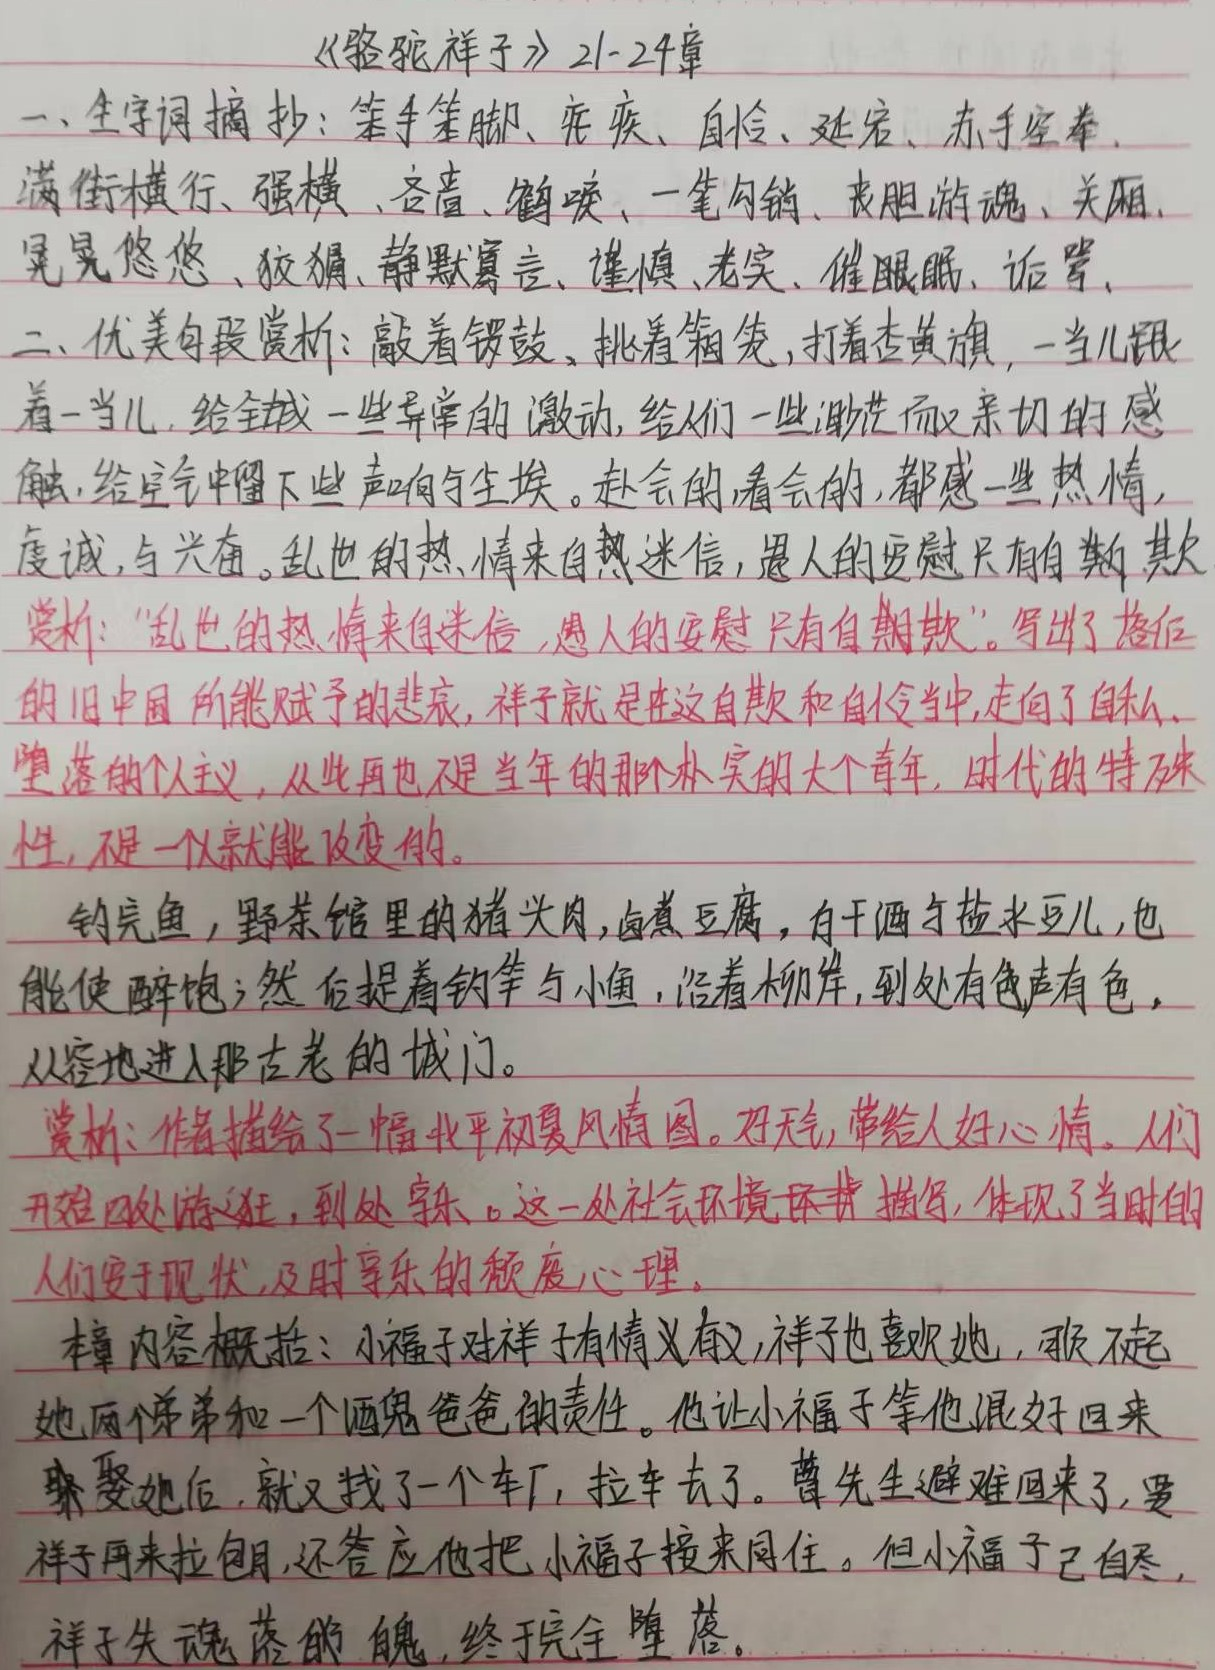 《骆驼祥子》21-24章
一、生字词摘抄：笨手笨脚、疟疾、自怜、延宕、赤手空拳、
满街横行、强横、吝啬、鹤唳、一笔勾销、丧胆游魂、关厢、
晃晃悠悠、狡猾、静默寡言、谨慎、老实、催眠眠、诟詈、
二、优美句段赏析：敲着锣鼓、挑着箱笼，打着杏黄旗，一当儿跟
着一当儿，给全城一些异常的激动，给人们一些渺茫而又亲切的感
触，给空气中留下些声响与尘埃。赴会的，看会的，都感一些热情，
虔诚，与兴奋。乱世的热情来自热迷信，愚人的安慰只有自期欺
赏析：“乱世的热情来自迷信，愚人的安慰只有自期欺”。写出了落后
的旧中国所能赋予的悲哀，祥子就是在这自欺和自怜当中，走向了自私、
堕落的个人主义，从此再也不是当年的那个朴实的大个青年，时代的特殊
性，不是一个人就能改变的。
钓完鱼，野茶馆里的猪头肉，卤煮豆腐，白干酒与盐水豆儿，也
能使醉饱；然后提着钓竿与小鱼，沿着柳岸，到处有色声有色，
从容地进入那古老的城门。
赏析：作者描绘了一幅北平初夏风情图。好天气，带给人好心情。人们
开始四处游逛，到处享乐。这一处社会环境描写，体现了当时的
人们安于现状，及时享乐的颓废心理。
本章内容概括：小福子对祥子有情义有义，祥子也喜欢她，承不起
她两个弟弟和一个酒鬼爸爸的责任。他让小福子等他混好回来
娶她后，就又找了一个车厂，拉车去了。曹先生避难回来了，要
祥子再来拉包月，还答应他把小福子接来同住。但小福子已自尽，
祥子失魂落的魄，终于完全堕落。